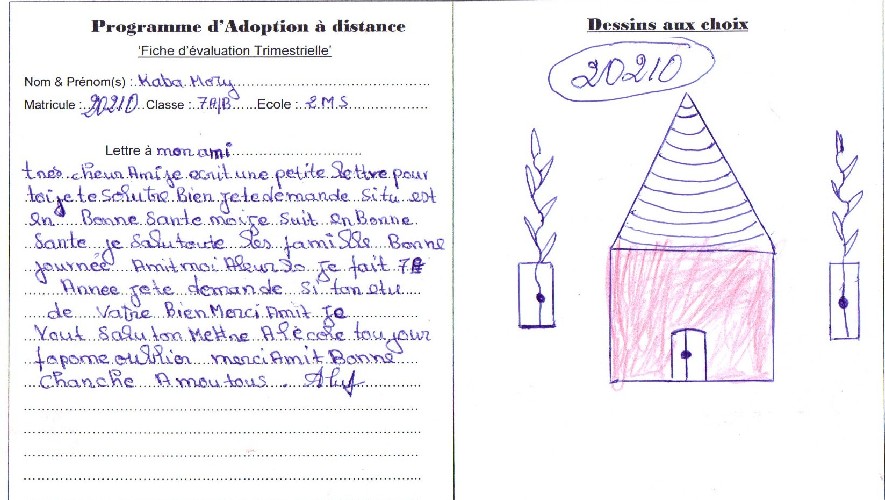 Programme d'Adoption à distance
'Fiche d'évaluation Trimestrielle'
Nom & Prénom(s) : Kaba Mory
Matricule : 20210 Classe : 7A/B Ecole : 2 M S
Lettre à mon ami
tres cheur Ami je ecrit une petite lettre pour
toi je te Salutre Bien je te demande si tu est
en Bonne Sante moi je suit en Bonne
Sante je Salutoute les famille Bonne
journée Amit moi je fait 7
Annee je te demande si ton etu
de Vatre Bien Merci Amit je
Vout Salu ton Mettre A l'école toujour
merci Amit Bonne
Chanche A mou tous
Dessins aux choix
20210